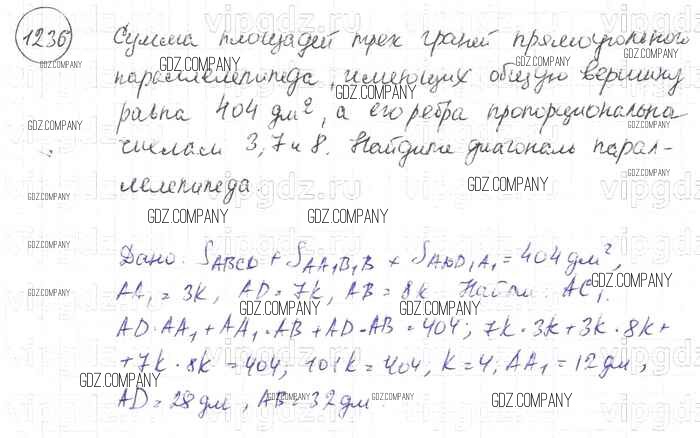 1236 Сумма площадей трех граней прямоугольного
параллелепипеда, имеющих общую вершину
равна 404 дм², а его ребра пропорциональна
числам 3, 7 и 8. Найдите диагональ парал-
лелепипеда.
Дано: SABCD + SAA₁B₁B + SADD₁A₁ = 404 дм²,
AA₁ = 3k, AD = 7k, AB = 8k. Найти: AC₁.
AD·AA₁ + AA₁·AB + AD·AB = 404; 7k·3k + 3k·8k +
+ 7k·8k = 404; 101k = 404, k = 4; AA₁ = 12 дм,
AD = 28 дм, AB = 32 дм.
GDZ.COMPANY
vipgdz.ru